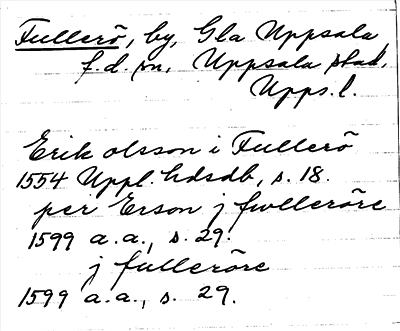 Fullerö, by, Gla Uppsala
f.d. sn, Uppsala stad,
Upps. l.
Erik olsson i Fullerö
1554 Uppl. hdsdb, s. 18.
per Erson j fwlleröre
1599 a.a., s. 29.
j fulleröre
1599 a.a., s. 29.